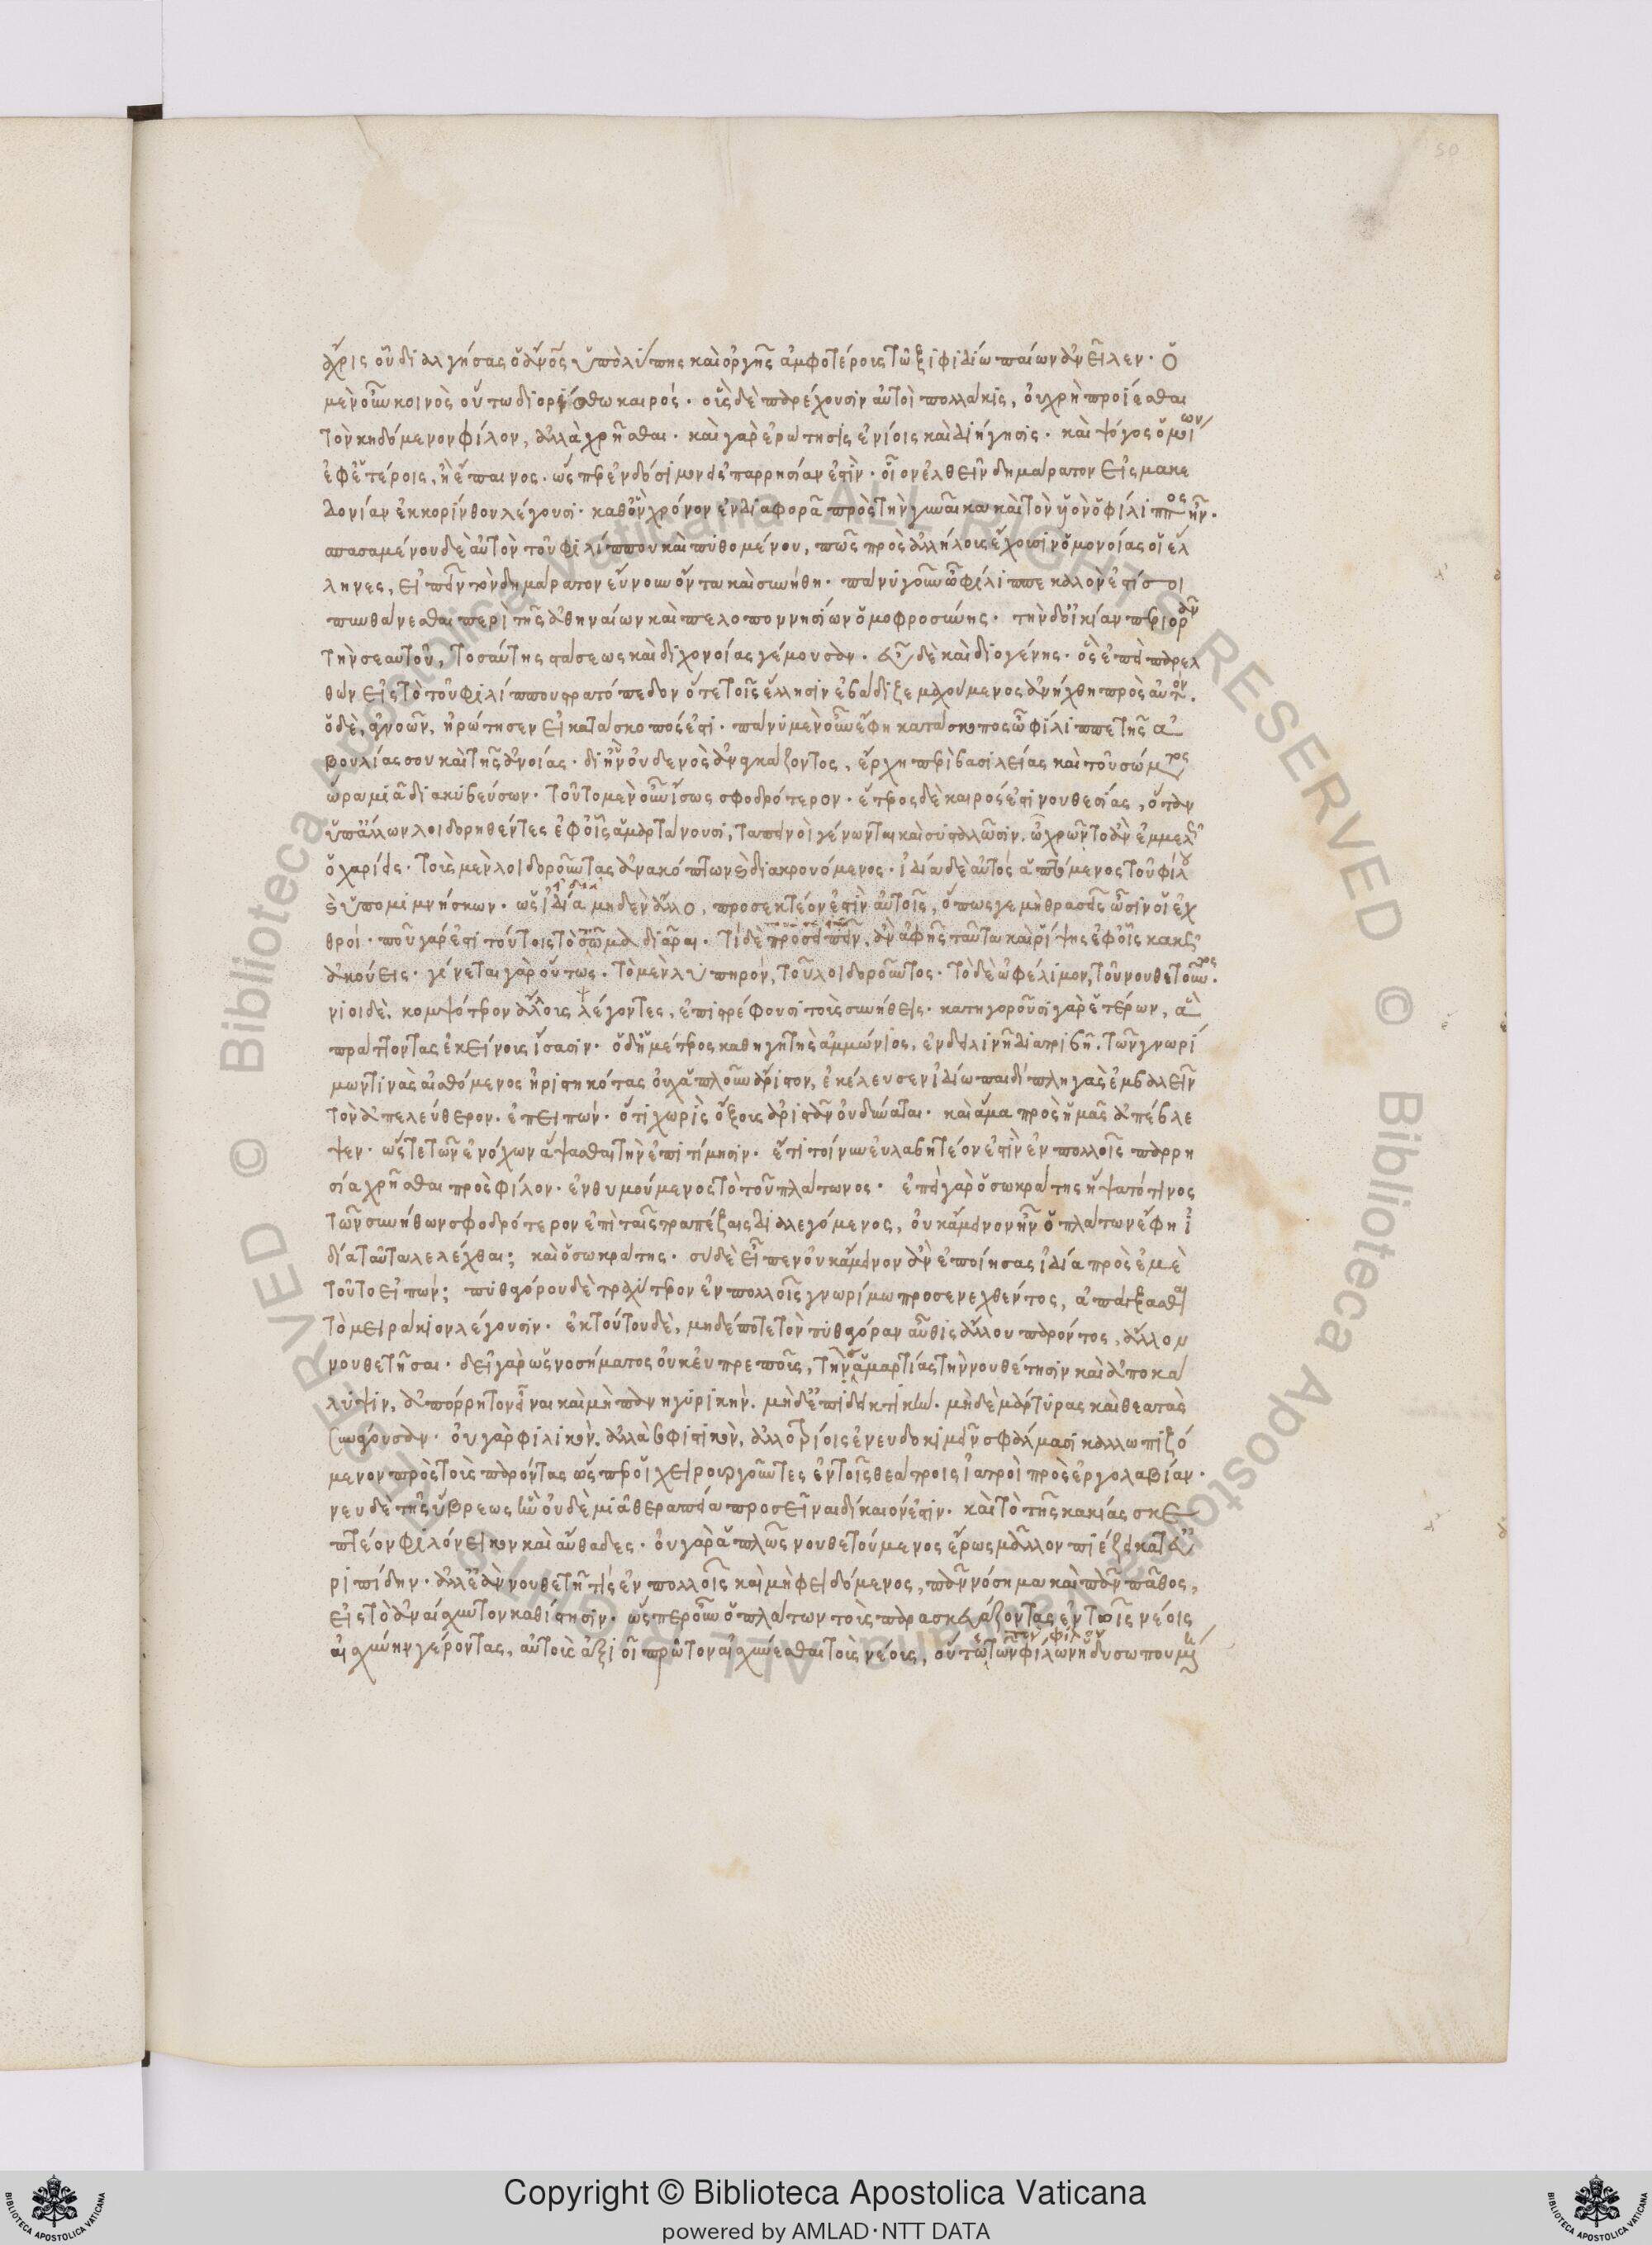 ἄχρις οὗ διαλγήσας ὁ ἀνὴρ ὑπὸ λύπης καὶ ὀργῆς ἀμφοτέρους τῶ ξιφιδίω παίων ἀνεῖλεν. ὁ
μὲν οὖν κοινὸς οὕτω διορίσθω καιρός. οὓς δὲ παρέχουσιν αὐτοὶ πολλάκις, οὐ χρὴ προίεσθαι
τὸν κηδόμενον φίλον, ἀλλὰ χρῆσθαι. καὶ γὰρ ἐρώτησις ἐνίοις καὶ διήγησις. καὶ ψόγος ὁμοίων
ἐφ' ἑτέροις, ἢ ἔπαινος. ὥσπερ ἐνδόσιμον εἰς παρρησίαν ἐστὶν. οἷον ἐλθεῖν δημάρατον εἰς μακε
δονίαν ἐκ κορίνθου λέγουσι. καθ' ὃν χρόνον ἐν διαφορᾶ πρὸς τὴν γυναῖκα καὶ τὸν υἱὸν ὁ φίλιππος ἦν.
ἀσπασαμένου δὲ αὐτὸν τοῦ φιλίππου καὶ πυθομένου, πῶς πρὸς ἀλλήλους ἔχουσιν ὁμονοίας οἱ ἕλ
ληνες, εἰπεῖν τὸν δημάρατον εὔνουν ὄντα καὶ συνήθη. πάνυ γοῦν ὦ φίλιππε καλὸν ἐστί σοι
πυνθάνεσθαι περὶ τῆς ἀθηναίων καὶ πελοποννησίων ὁμοφροσύνης. τὴν δ' οἰκίαν περιορᾶν
τὴν σεαυτοῦ, τοσαύτης στάσεως καὶ διχονοίας γέμουσαν. εὖ δὲ καὶ διογένης. ὃς ἐπεὶ παρελ
θὼν εἰς τὸ τοῦ φιλίππου στρατόπεδον ὅτε τοῖς ἕλλησιν ἐβάδιζε μαχούμενος ἀνήχθη πρὸς αὐτόν.
ὁ δὲ, ἀγνοῶν, ἠρώτησεν εἰ κατάσκοπός ἐστι. πάνυ μὲν οὖν ἔφη κατάσκοπος ὦ φίλιππε τῆς ἀ
βουλίας σου καὶ τῆς ἀνοίας. δι' ἣν οὐδενὸς ἀναγκάζοντος, ἔρχη περὶ βασιλείας καὶ τοῦ σώματος
ὥρα μιᾶ διακυβεύσων. τοῦτο μὲν οὖν ἴσως σφοδρότερον. ἕτερος δὲ καιρός ἐστι νουθεσίας, ὅταν
ὑπ' ἄλλων λοιδορηθέντες ἐφ' οἷς ἁμαρτάνουσι, ταπεινοὶ γένωνται καὶ συσταλῶσιν. ὧ χρῶντο ἂν ἐμμελῶς
ὁ χαρίεις. τοὺς μὲν λοιδοροῦντας ἀνακόπτων καὶ διακρουόμενος. ἰδία δὲ αὐτὸς ἁπτόμενος τοῦ φίλου
καὶ ὑπομιμνήσκων. ὡς εἰ διὰ μηδὲν ἄλλο, προσεκτέον ἐστὶν αὐτοῖς, ὅπως γε μὴ θρασεῖς ὦσιν οἱ ἐχ
θροί. ποῦ γάρ ἐστι τούτοις τὸ στόμα διᾶραι. τί δὲ προσειπεῖν, ἂν ἀφῆς ταῦτα καὶ ῥίψης ἐφ' οἷς κακῶς
ἀκούεις. γένεται γὰρ οὕτως. τὸ μὲν λυπηρόν, τοῦ λοιδοροῦντος. τὸ δὲ ὠφέλιμον, τοῦ νουθετοῦντος.
νιοι δὲ, κομψότερον ἄλλους λέγοντες, ἐπιστρέφουσι τοὺς συνήθεις. κατηγοροῦσι γὰρ ἑτέρων, ἃ
πράττοντας ἐκείνους ἴσασιν. ὁ δ' ἡμέτερος καθηγητὴς ἀμμώνιος, ἐν δειλινῆ διατριβῆ. τῶν γνωρί
μων τινὰς αἰσθόμενος ἠριστηκότας οὐχ ἁπλοῦν ἄριστον, ἐκέλευσεν ἰδίω παιδὶ πληγὰς ἐμβαλεῖν
τὸν ἀπελεύθερον. ἐπειπών. ὅτι χωρὶς ὄξους ἀριστᾶν οὐ δύναται. καὶ ἅμα πρὸς ἡμᾶς ἀπέβλε
ψεν. ὥστε τῶν ἐνόχων ἅψασθαι τὴν ἐπιτίμησιν. ἔτι τοίνυν εὐλαβητέον ἐστὶν ἐν πολλοῖς παρρη
σία χρῆσθαι πρὸς φίλον. ἐνθυμούμενος τὸ τοῦ πλάτωνος. ἐπεὶ γὰρ ὁ σωκράτης ἥψατό τινος
τῶν συνήθων σφοδρότερον ἐπὶ ταῖς τραπέζαις διαλεγόμενος, οὐκ ἄμεινον ἦν ὁ πλάτων ἔφη ἰ
δία ταῦτα λελέχθαι; καὶ ὁ σωκράτης. σὺ δὲ εἶπεν οὐκ ἄμεινον ἂν ἐποίησας ἰδία πρὸς ἐμὲ
τοῦτο εἰπών; πυθαγόρου δὲ τραχύτερον ἐν πολλοῖς γνωρίμω προσενεχθέντος, ἀπάγξασθαι
τὸ μειράκιον λέγουσιν. ἐκ τούτου δὲ, μηδέποτε τὸν πυθαγόραν αὖθις ἄλλου παρόντος, ἄλλον
νουθετῆσαι. δεῖ γὰρ ὡς νοσήματος οὐκ εὐπρεποῦς, τῆς ἁμαρτίας τὴν νουθέτησιν καὶ ἀποκά
λυψιν, ἀπόρρητον εἶναι καὶ μὴ πανηγυρικήν. μηδ' ἐπιδεικτικήν. μηδὲ μάρτυρας καὶ θεατὰς
συνάγουσαν. οὐ γὰρ φιλικὸν, ἀλλὰ σοφιστικὸν, ἀλλοτρίοις ἐνευδοκιμεῖν σφάλμασι καλλωπιζό
μενον πρὸς τοὺς παρόντας ὥσπερ οἱ χειρουργοῦντες ἐν τοῖς θεάτροις ἰατροὶ πρὸς ἐργολαβίαν.
νευ δὲ τῆς ὕβρεως ἣν οὐδὲ μιᾶ θεραπεία προσεῖναι δίκαιόν ἐστιν. καὶ τὸ τῆς κακίας σκε
πτέον φιλόνεικον καὶ αὔθαδες. οὐ γὰρ ἁπλῶς νουθετούμενος ἔρως μᾶλλον πιέζει κατ' εὐ
ριπίδην. ἀλλ' ἐὰν νουθετῆ τις ἐν πολλοῖς καὶ μὴ φειδόμενος, πᾶν νόσημα καὶ πᾶν πάθος,
εἰς τὸ ἀναίσχυντον καθίστησιν. ὥσπερ οὖν ὁ πλάτων τοὺς παρασκευάζοντας ἐν τοῖς νέοις
αἰσχύνην γέροντας, αὐτοὺς ἀξιοῖ πρῶτον αἰσχύνεσθαι τοὺς νέους, οὕτω τῶν φίλων ἡ δυσωπουμένη